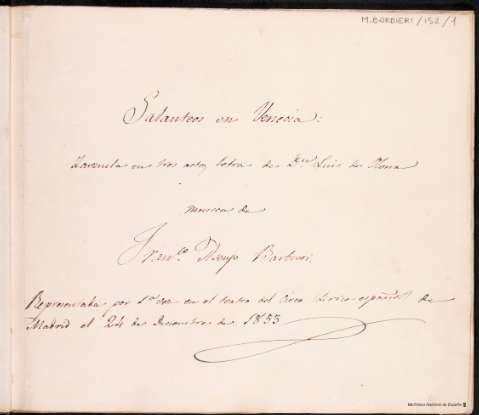 M. BARBIERI / 152 / 1
Galanteos en Venecia:
Zarzuela en tres actos letra de Dn Luis de Olona
musica de
Franco. Asenjo Barbieri.
Representada por 1ª vez en el teatro del Circo (Lirico-español) de
Madrid el 24 de Diciembre de 1853
Biblioteca Nacional de España